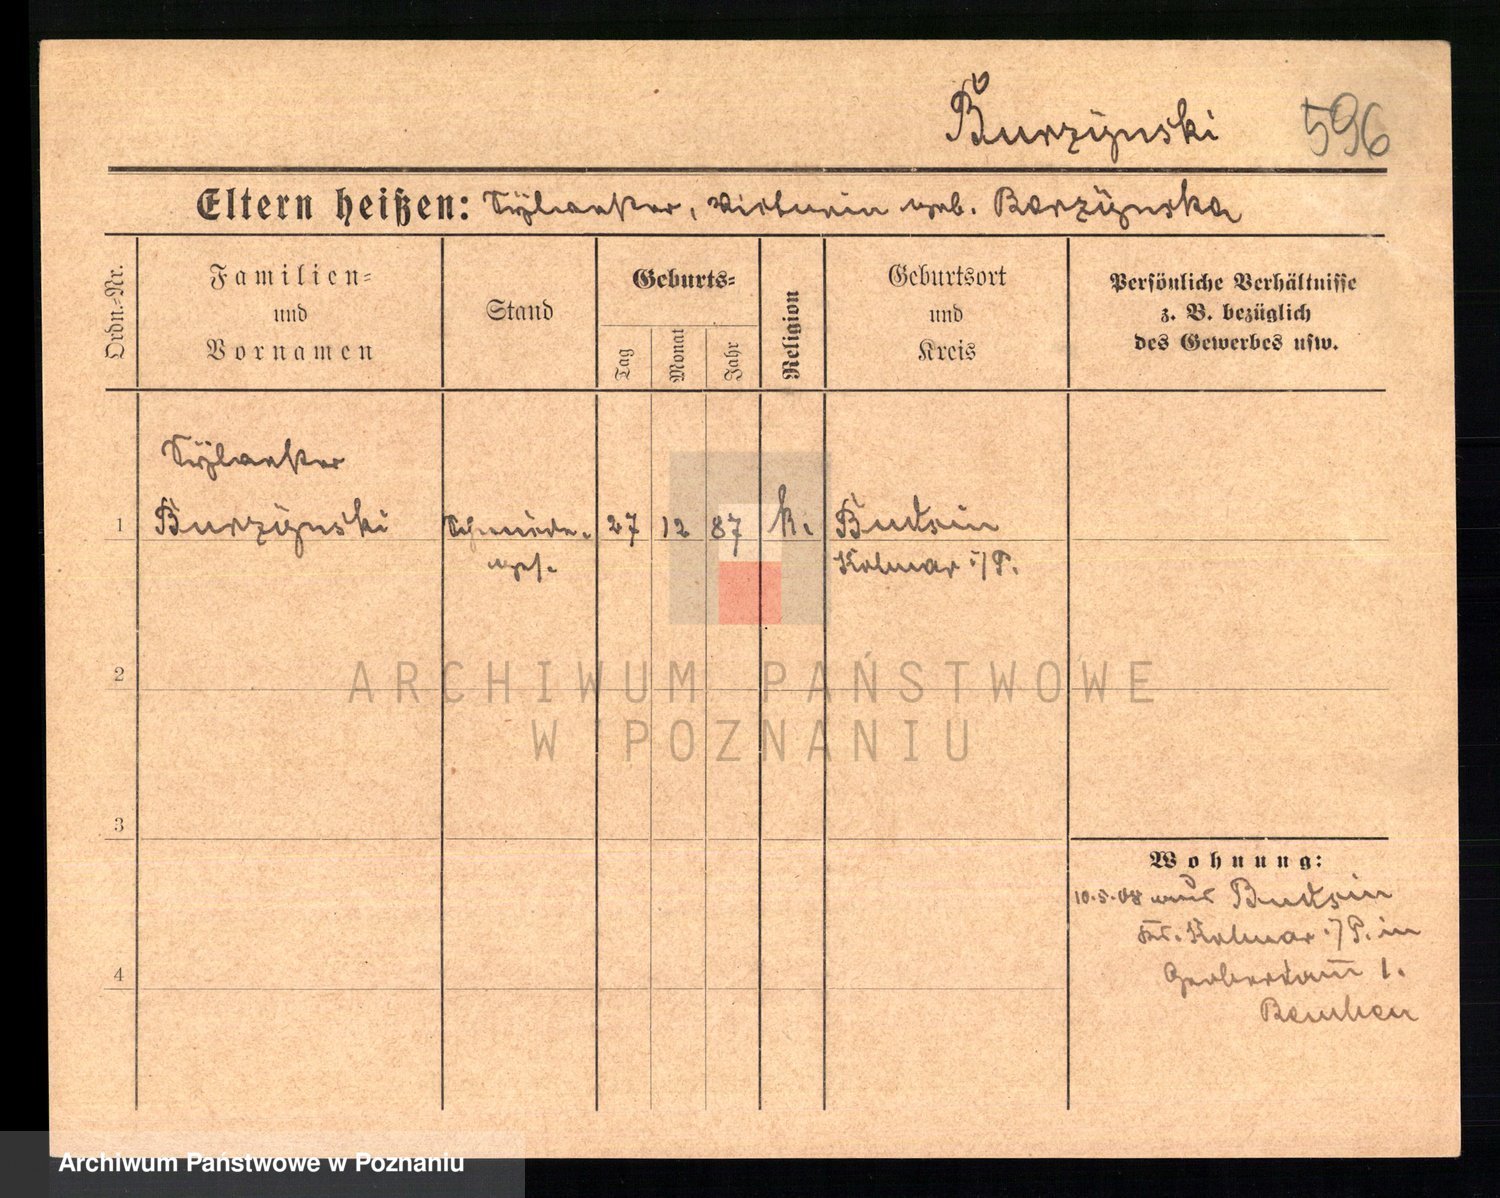 Burzynski 596
Eltern heißen: Sylvester, Victoria geb. Borzynska
Ordn.-Nr.
Familien-
und
Vornamen
Stand
Geburts-
Tag
Monat
Jahr
Religion
Geburtsort
und
Kreis
Persönliche Verhältnisse
z. B. bezüglich
des Gewerbes usw.
Sylvester
1 Burzynski Schmiede- 27 12 87 k. Budsin
ges. Kolmar i/P.
2
3
4
Wohnung:
10.5.08 aus Budsin
Kr. Kolmar i/P. in
Gerberdamm 1.
ARCHIWUM PAŃSTWOWE
W POZNANIU
Archiwum Państwowe w Poznaniu